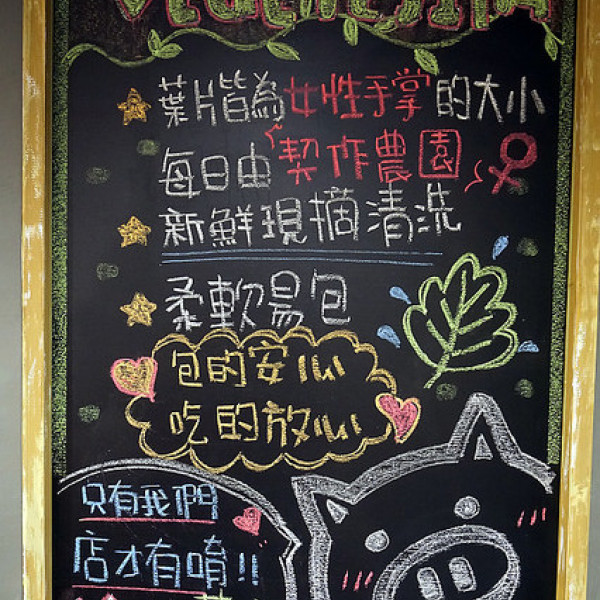 葉片皆為女性手掌的大小
每日由契作農園
新鮮現摘清洗
柔軟易包
包的安心
吃的放心
只有我們
店才有唷!!